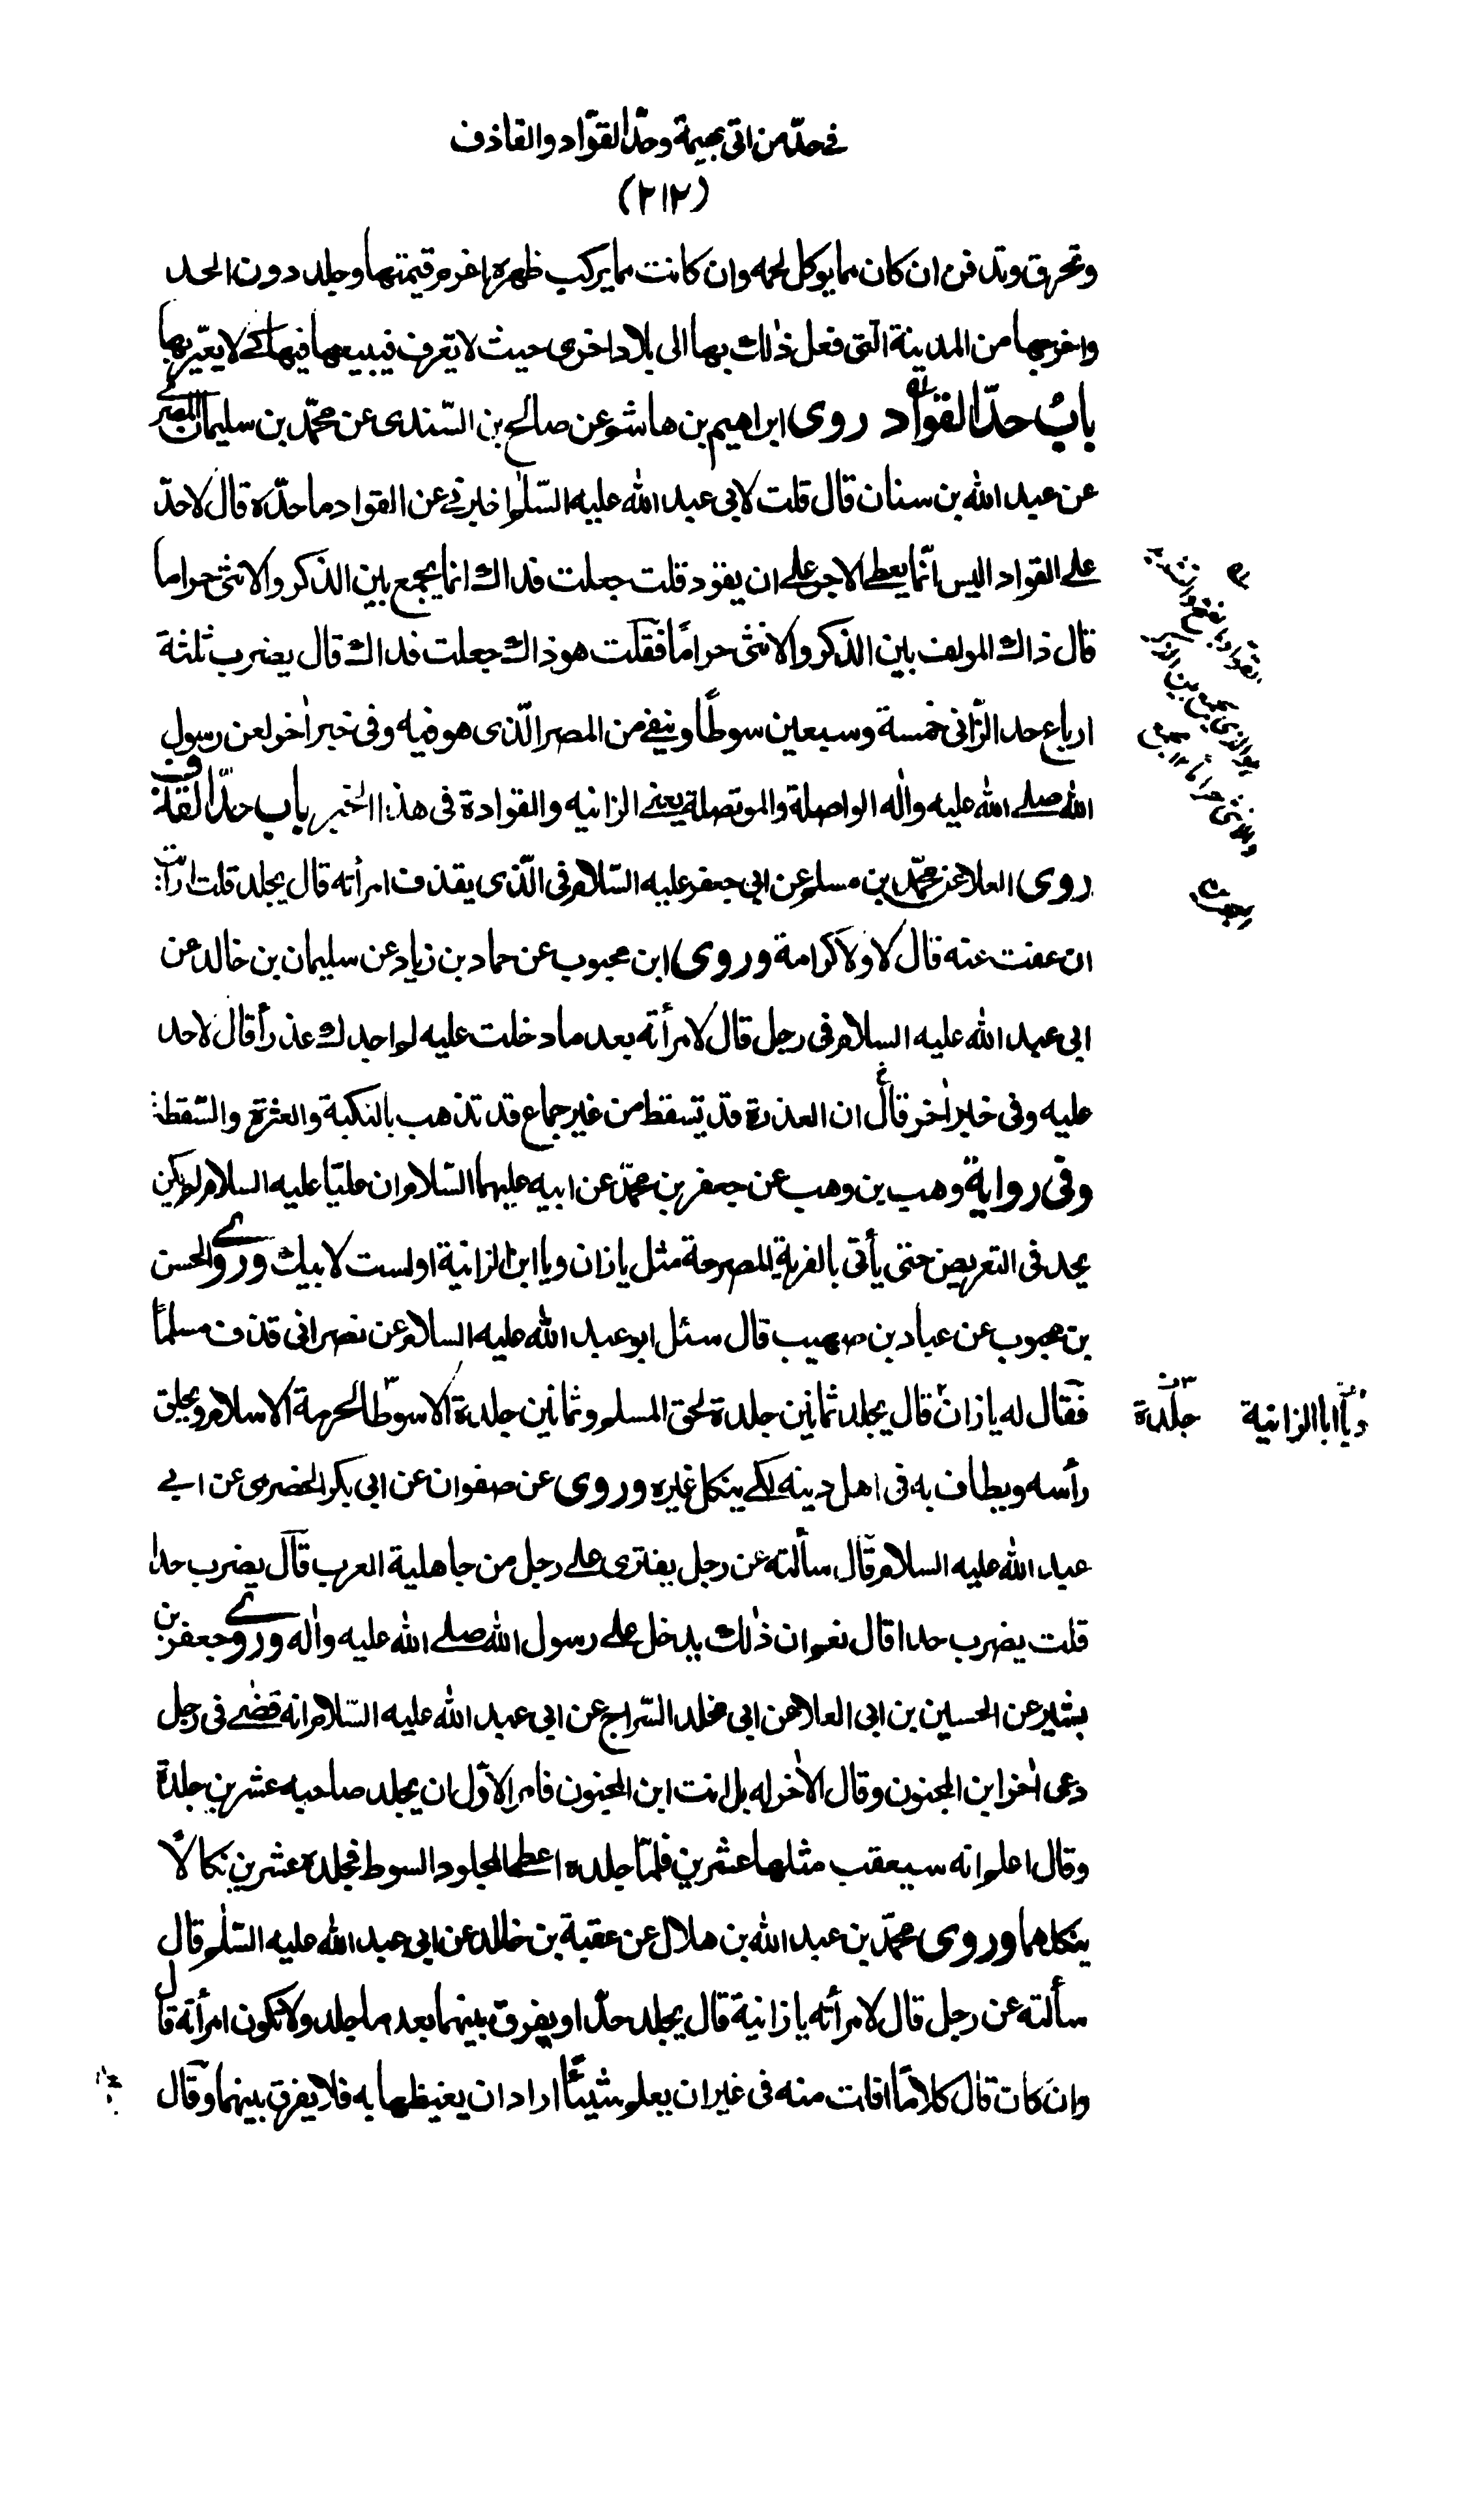 في حدّ من اتى بهيمة وحدّ القوّاد والقاذف
(٢١٢)
وتحرق وتدفن ان كان مما يوكل لحمه وان كانت مما يركب ظهره اغرم قيمتها وجلد دون الحد
واخرجها من المدينة الّتى فعل ذٰلك بها الى بلاد اخرى حيث لا تعرف فيبيعها فيها كے لا يعيّر بها
بابُ حدّ القوّاد روى ابراهيم بن هاشم عن صالح بن السّندى عن محمّد بن سليمان المصرے
عن عبد الله بن سنان قال قلت لابى عبد الله عليه السّلٰم اخبرنے عن القواد ما حدّه قال لا حدّ
علے القواد اليس انّما يعطے الاجر علے ان يقود قلت جعلت فداك انما يجمع بين الذكر والانثى حراما
قال ذاك المولف بين الذكر والانثى حرامًا فقلت هو ذاك جعلت فداك قال يضرب ثلثة
ارباع حد الزّانى خمسة وسبعين سوطًا وينفے من المصر الّذى هو فيه وفى خبر اٰخر لعن رسول
الله صلے الله عليه واٰله الواصلة والموتصلة يعنے الزانيه والقوادة فى هذا الخبر باب حدّ القذف
روى العلا عن محمّد بن مسلم عن ابى جعفر عليه السّلام فى الّذى يقذف امرأته قال يجلد قلت ارأيت
ان عفت عنه قال لا ولا كرامة وروى ابن محبوب عن حماد بن زياد عن سليمان بن خالد عن
ابى عبد الله عليه السلام فى رجل قال لامرأته بعد ما دخلت عليه لم اجدك عذرأ قال لا حد
عليه وفى خبر اٰخر قال ان العذرة قد تسقط من غير جماع قد تذهب بالنكبة والعثرة والسّقطة
وفى رواية وهب بن وهب عن جعفر بن محمّد عن ابيه عليهما السّلام ان عليّا عليه السلام لم يكن
يحد فى التعريض حتى يأتى بالفرية المصرحة مثل يا زان ويا ابن الزانية او لست لابيك وروے الحسن
بن محبوب عن عباد بن صهيب قال سئل ابو عبد الله عليه السلام عن نصرانى قذف مسلمًا
فقال له يا زان قال يجلد ثمانين جلدة لحق المسلم وثمانين جلدة الا سوطًا لحرمة الاسلام ويحلق
جلدة
ويا ابا الزانية
رأسه ويطاف به فى اهل دينه لكے ينكل غيره وروى عن صفوان عن ابى بكر الحضرمى عن ابے
عبد الله عليه السلام قال سألته عن رجل يفترى علے رجل من جاهلية العرب قال يضرب حدا
قلت يضرب حدا قال نعم ان ذٰلك يدخل علے رسول الله صلے الله عليه واٰله وروے جعفر بن
بشير عن الحسين بن ابى العلا عن ابى مخلد السّراج عن ابى عبد الله عليه السّلام انه قضٰے فى رجل
دعى اٰخر ابن المجنون وقال الاٰخر له بل انت ابن المجنون فامر الاوّل ان يجلد صاحبه عشرين جلدة
وقال اعلم انه سيعقب مثلها عشرين فلمّا جلده اعطے المجلود السوط فجلده عشرين نكالًا
ينكلهما وروى محمّد بن عبد الله بن هلال عن عقبة بن خالد عن ابى عبد الله عليه السّلٰم قال
سألته عن رجل قال لامرأته يا زانية قال يجلد حدّا ويفرق بينهما بعد ما جلد ولا تكون امرأته قال
وان كان قال كلامًا افلت منه فى غير ان يعلم شيئًا اراد ان يغيظها به فلا يفرق بينهما وقال